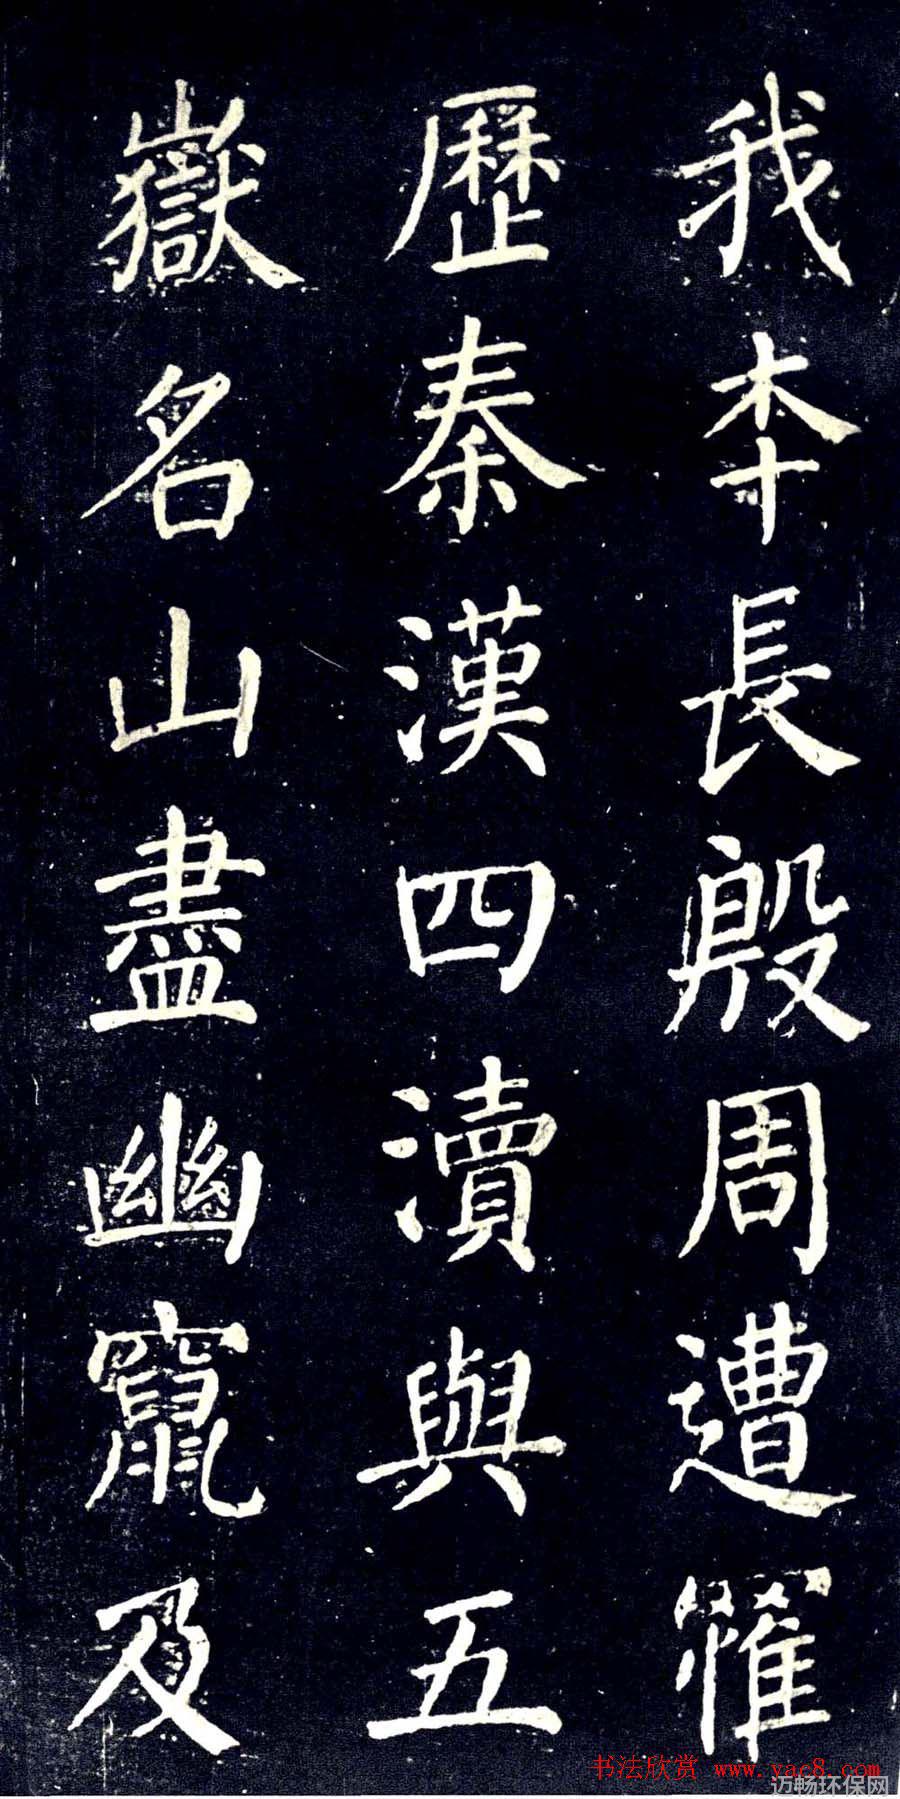 我本長殷周遭罹
歷秦漢四瀆與五
嶽名山盡幽竄及
书法欣赏 www.yac8.com
迈畅环保网